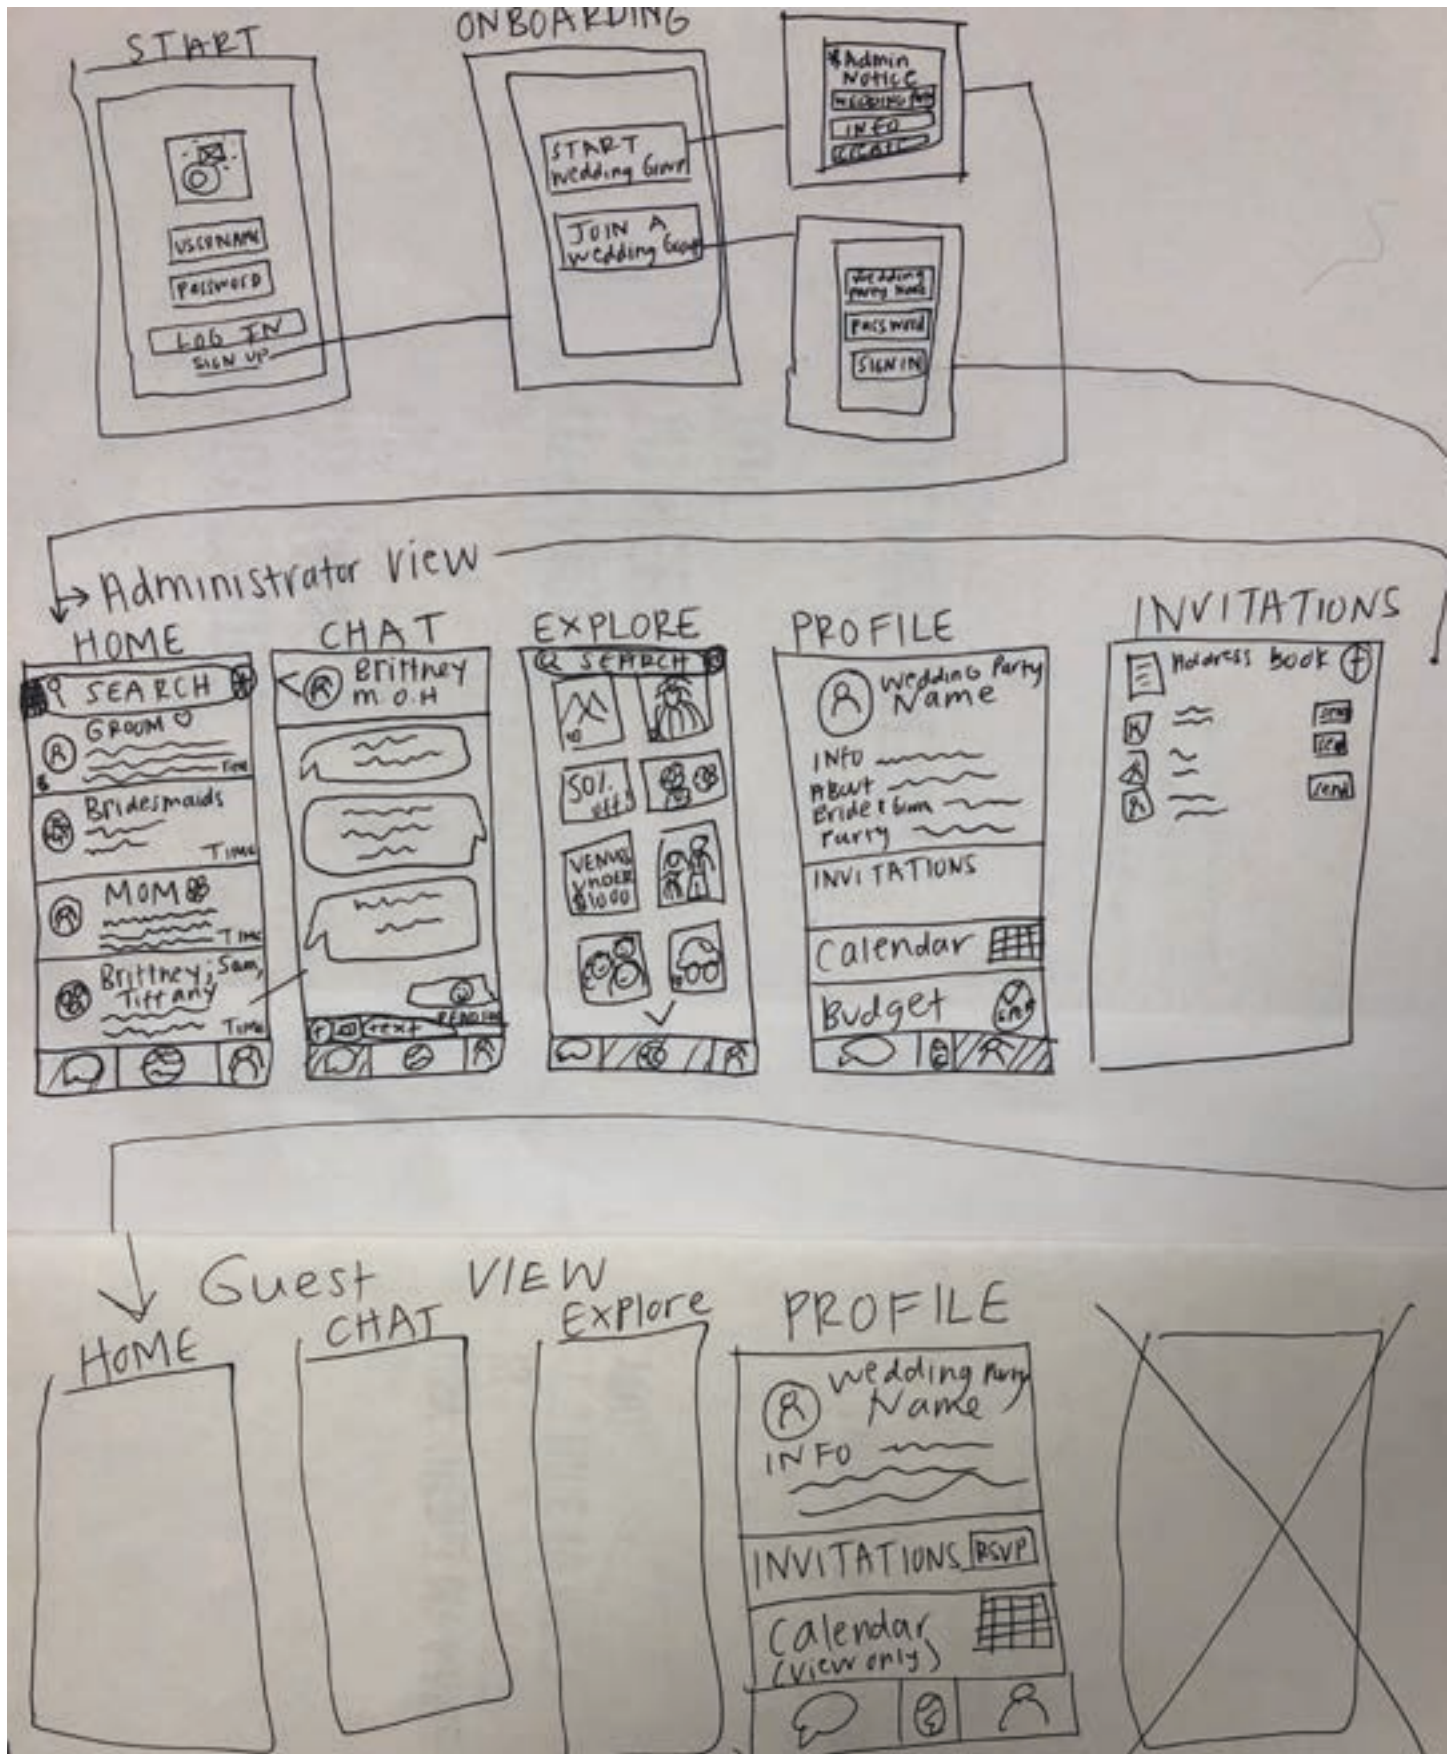 START
USERNAME
PASSWORD
LOG IN
SIGN UP
ONBOARDING
START
Wedding Group
JOIN A
Wedding Group
*Admin
NOTICE
WEDDING
INFO
Wedding
Party Name
Password
SIGN IN
Administrator View
HOME
SEARCH
GROOM ♡
Time
Bridesmaids
TIME
MOM
TIME
Brittney, Sam,
Tiffany
TIME
CHAT
Brittney
M.O.H
+ text
EXPLORE
SEARCH
50%
off!
VENUES
UNDER
$1000
PROFILE
Wedding Party
Name
INFO
About
Bride & Groom
Party
INVITATIONS
Calendar
Budget
INVITATIONS
Address Book +
send
send
send
Guest VIEW
HOME
CHAT
Explore
PROFILE
Wedding Party
Name
INFO
INVITATIONS RSVP
Calendar
(view only)